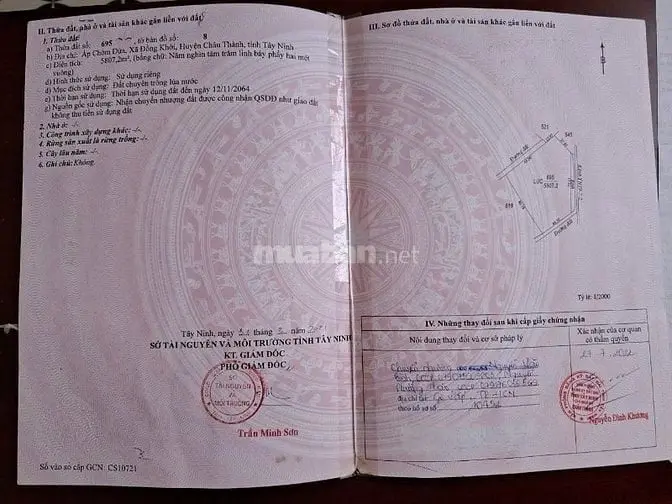 II. Thửa đất, nhà ở và tài sản khác gắn liền với đất
1. Thửa đất:
a) Thửa đất số: 695 , tờ bản đồ số: 8
b) Địa chỉ: Ấp Chòm Dừa, Xã Đồng Khởi, Huyện Châu Thành, tỉnh Tây Ninh
c) Diện tích: 5807,2m², (bằng chữ: Năm nghìn tám trăm linh bảy phẩy hai mét
vuông)
d) Hình thức sử dụng: Sử dụng riêng
đ) Mục đích sử dụng: Đất chuyên trồng lúa nước
e) Thời hạn sử dụng: Thời hạn sử dụng đất đến ngày 12/11/2064
g) Nguồn gốc sử dụng: Nhận chuyển nhượng đất được công nhận QSDĐ như giao đất
không thu tiền sử dụng đất
2. Nhà ở: -/-
3. Công trình xây dựng khác: -/-
4. Rừng sản xuất là rừng trồng: -/-
5. Cây lâu năm: -/-
6. Ghi chú: Không.
Tây Ninh, ngày tháng năm
SỞ TÀI NGUYÊN VÀ MÔI TRƯỜNG TỈNH TÂY NINH
KT. GIÁM ĐỐC
PHÓ GIÁM ĐỐC
SỞ
TÀI NGUYÊN
VÀ
MÔI TRƯỜNG
Trần Minh Sơn
Số vào sổ cấp GCN: CS10721
III. Sơ đồ thửa đất, nhà ở và tài sản khác gắn liền với đất
B
521
543
Đường đất
695
LUC 5807.2
616
Đường đất
Tỷ lệ: 1/2000
muaban.net
IV. Những thay đổi sau khi cấp giấy chứng nhận
Nội dung thay đổi và cơ sở pháp lý
Xác nhận của cơ quan
có thẩm quyền
Chuyển nhượng Nguyễn
địa chỉ Gò Vấp, TP. HCM
theo hồ sơ số
Nguyễn Đình Khương